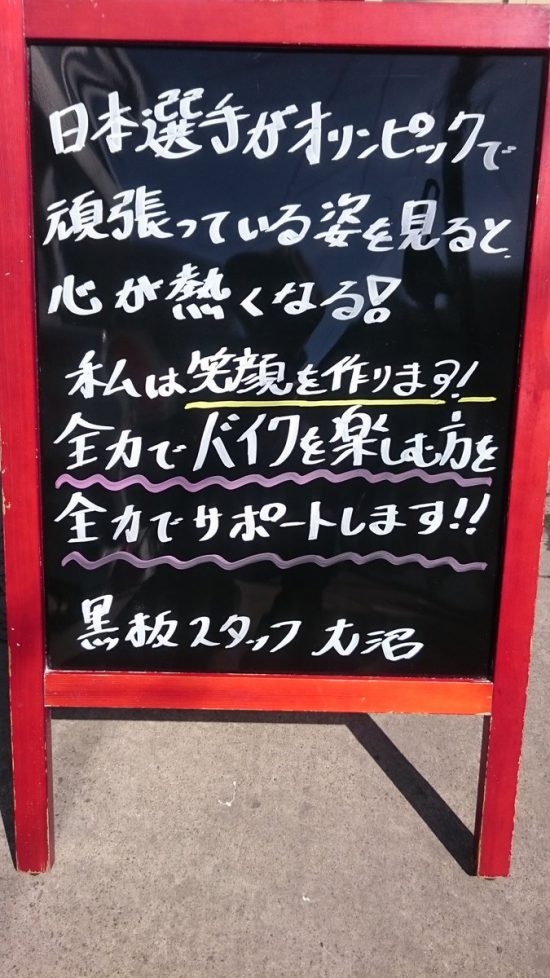 日本選手がオリンピックで
頑張っている姿を見ると
心が熱くなる!
私は笑顔を作ります!
全力でバイクを楽しむ方を
全力でサポートします!!
黒板スタッフ 大沼